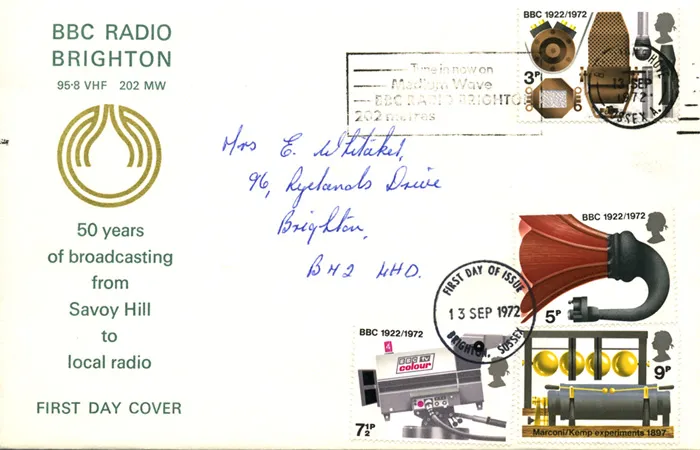 BBC RADIO
BRIGHTON
95·8 VHF 202 MW
50 years
of broadcasting
from
Savoy Hill
to
local radio
FIRST DAY COVER
Tune in now on
Medium Wave
BBC RADIO BRIGHTON
202 metres
BBC 1922/1972
3P
13 SEP
1972
SUSSEX A.
Mrs E. Whitaker,
96, Rylands Drive
Brighton,
BH2 4HD.
BBC 1922/1972
5P
FIRST DAY OF ISSUE
13 SEP 1972
BRIGHTON, SUSSEX
BBC 1922/1972
4
BBC TV
colour
7½P
9P
Marconi/Kemp experiments 1897